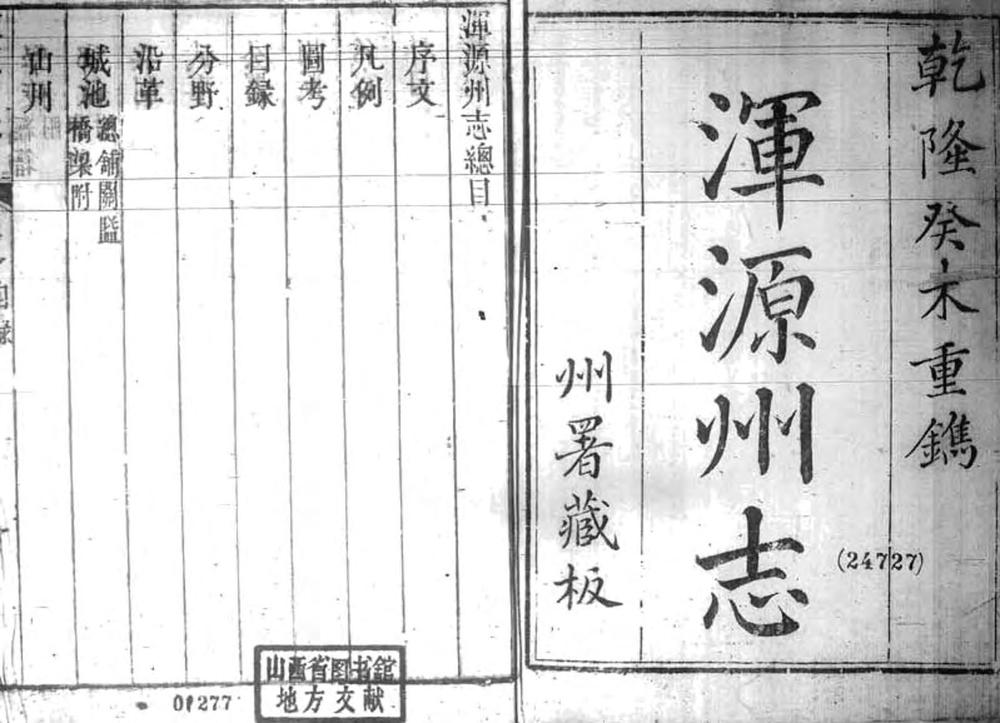 乾隆癸未重鐫
渾源州志
(24727)
州署藏板
渾源州志總目
序文
凡例
圖考
目錄
分野
沿革
城池
舖關
橋梁附
山川
山西省图书馆
地方文献
01277